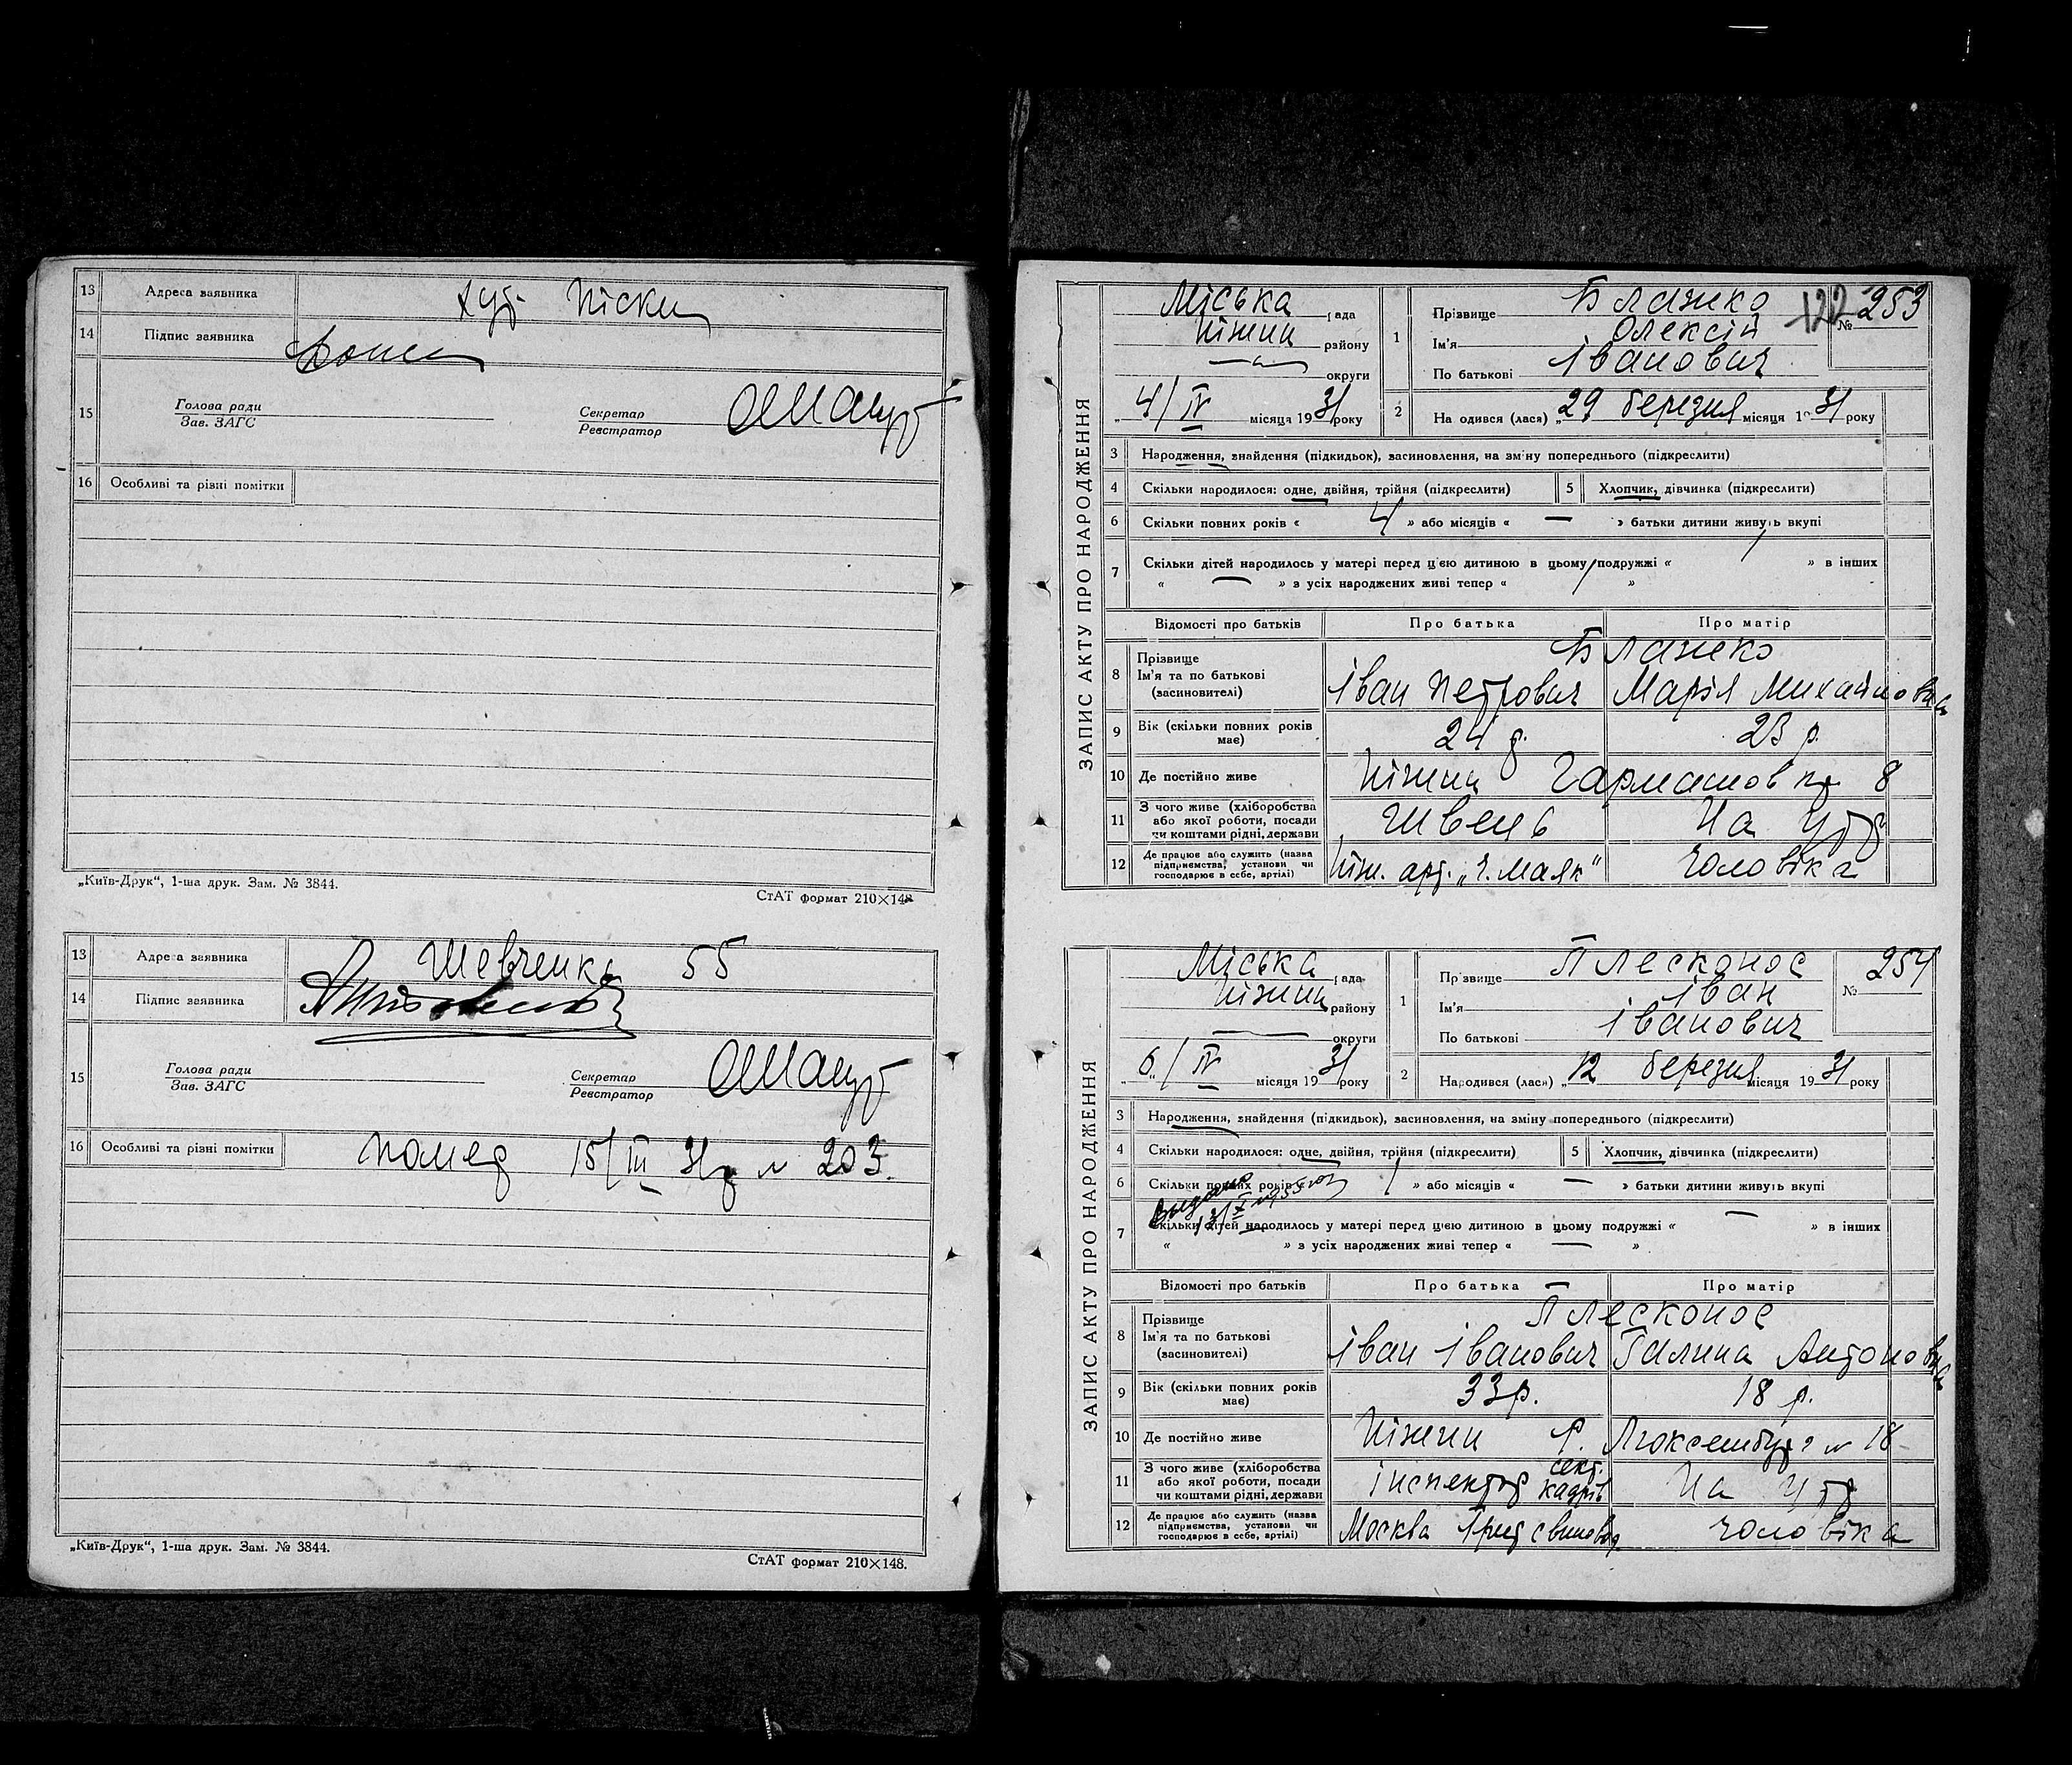 13 Адреса заявника хут. Піски
14 Підпис заявника
15 Голова ради
Зав. ЗАГС
Секретар
Реєстратор
16 Особливі та різні помітки
„Київ-Друк“, 1-ша друк. Зам. № 3844.
СтАТ формат 210×148
13 Адреса заявника Шевченка 55
14 Підпис заявника
15 Голова ради
Зав. ЗАГС
Секретар
Реєстратор
16 Особливі та різні помітки 15/III 31 р № 203.
„Київ-Друк“, 1-ша друк. Зам. № 3844.
СтАТ формат 210×148.
ЗАПИС АКТУ ПРО НАРОДЖЕННЯ
Міська рада
Ніжин району
— округи
„4/IV місяця 1931 року
1 Прізвище Блажко
Ім'я Олексій
По батькові Іванович
122 № 253
2 На одився (лася) „29 березня місяця 1931 року
3 Народження, знайдення (підкидьок), засиновлення, на зміну попереднього (підкреслити)
4 Скільки народилося: одне, двійня, трійня (підкреслити) 5 Хлопчик, дівчинка (підкреслити)
6 Скільки повних років « 4 » або місяців « — » батьки дитини живуть вкупі
7 Скільки дітей народилось у матері перед цією дитиною в цьому подружжі « 1 » в інших
« — » з усіх народжених живі тепер « 1 »
Відомості про батьків Про батька Про матір
8 Прізвище Блажко
Ім'я та по батькові
(засиновителі) Іван Петрович Марія Михайловна
9 Вік (скільки повних років має) 24 р. 23 р.
10 Де постійно живе Ніжин 8
11 З чого живе (хліборобства
або якої роботи, посади
чи коштами рідні, держави Швець На утр
12 Де працює або служить (назва
підприємства, установи чи
господарює в себе, артілі) Ніж. арт. „Ч. Маяк“ чоловіка
ЗАПИС АКТУ ПРО НАРОДЖЕННЯ
Міська рада
Ніжин району
— округи
„6/IV місяця 1931 року
1 Прізвище Плесконос
Ім'я Іван
По батькові Іванович
№ 254
2 Народився (лася) „12 березня місяця 1931 року
3 Народження, знайдення (підкидьок), засиновлення, на зміну попереднього (підкреслити)
4 Скільки народилося: одне, двійня, трійня (підкреслити) 5 Хлопчик, дівчинка (підкреслити)
6 Скільки повних років « 1 » або місяців « — » батьки дитини живуть вкупі
7 Скільки дітей народилось у матері перед цією дитиною в цьому подружжі « — » в інших
« » з усіх народжених живі тепер « — »
Відомості про батьків Про батька Про матір
8 Прізвище Плесконос
Ім'я та по батькові
(засиновителі) Іван Іванович Галина Антоновна
9 Вік (скільки повних років має) 33 р. 18 р.
10 Де постійно живе Ніжин Р. Люксембург № 18
11 З чого живе (хліборобства
або якої роботи, посади
чи коштами рідні, держави інспектор сект. кадрів На утр
12 Де працює або служить (назва
підприємства, установи чи
господарює в себе, артілі) Москва чоловіка